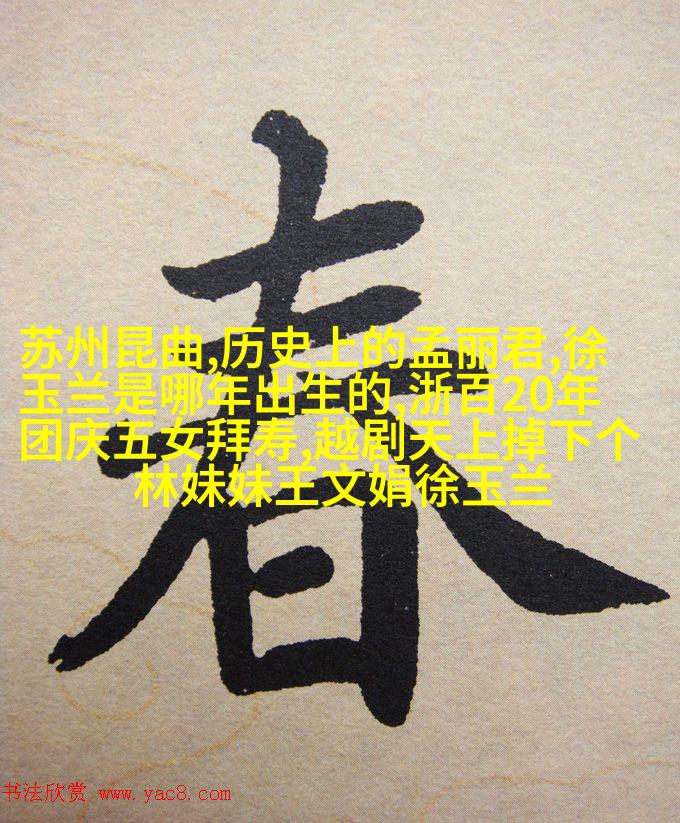 春
苏州昆曲,历史上的孟丽君,徐
玉兰是哪年出生的,浙百20年
团庆五女拜寿,越剧天上掉下个
林妹妹王文娟徐玉兰
书法欣赏 www.yac8.com